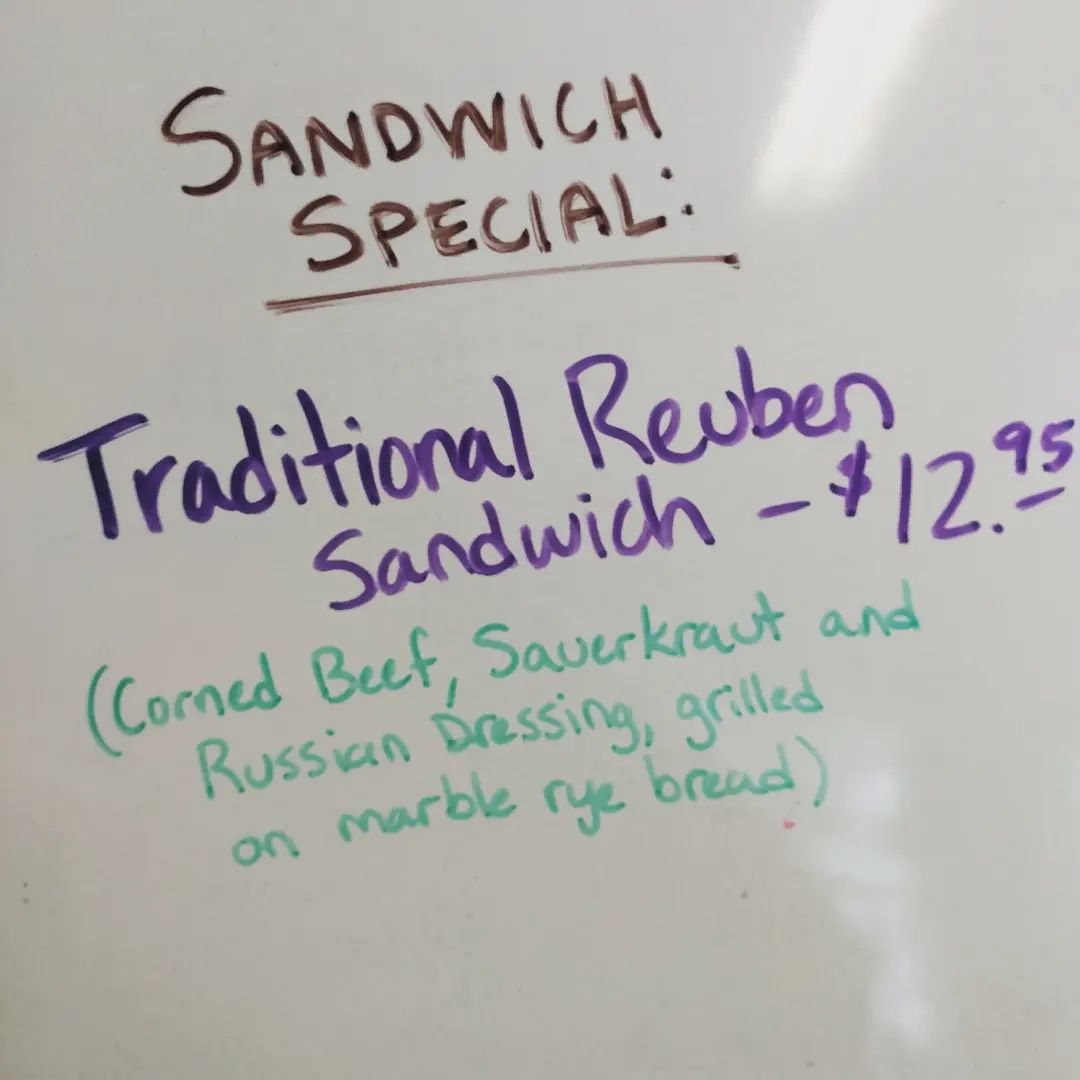 SANDWICH
SPECIAL:
Traditional Reuben
Sandwich - $12.95
(Corned Beef, Sauerkraut and
Russian Dressing, grilled
on marble rye bread)